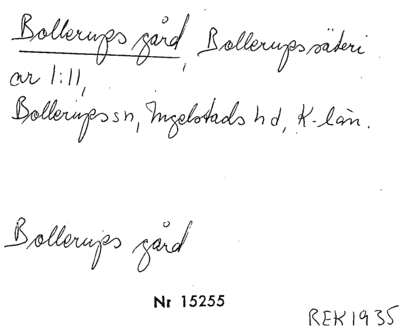 Bollerups gård, Bollerupssäteri
ar 1:11,
Bollerupssn, Ingelstads hd, K-län.
Bollerups gård
Nr 15255
REK 1935